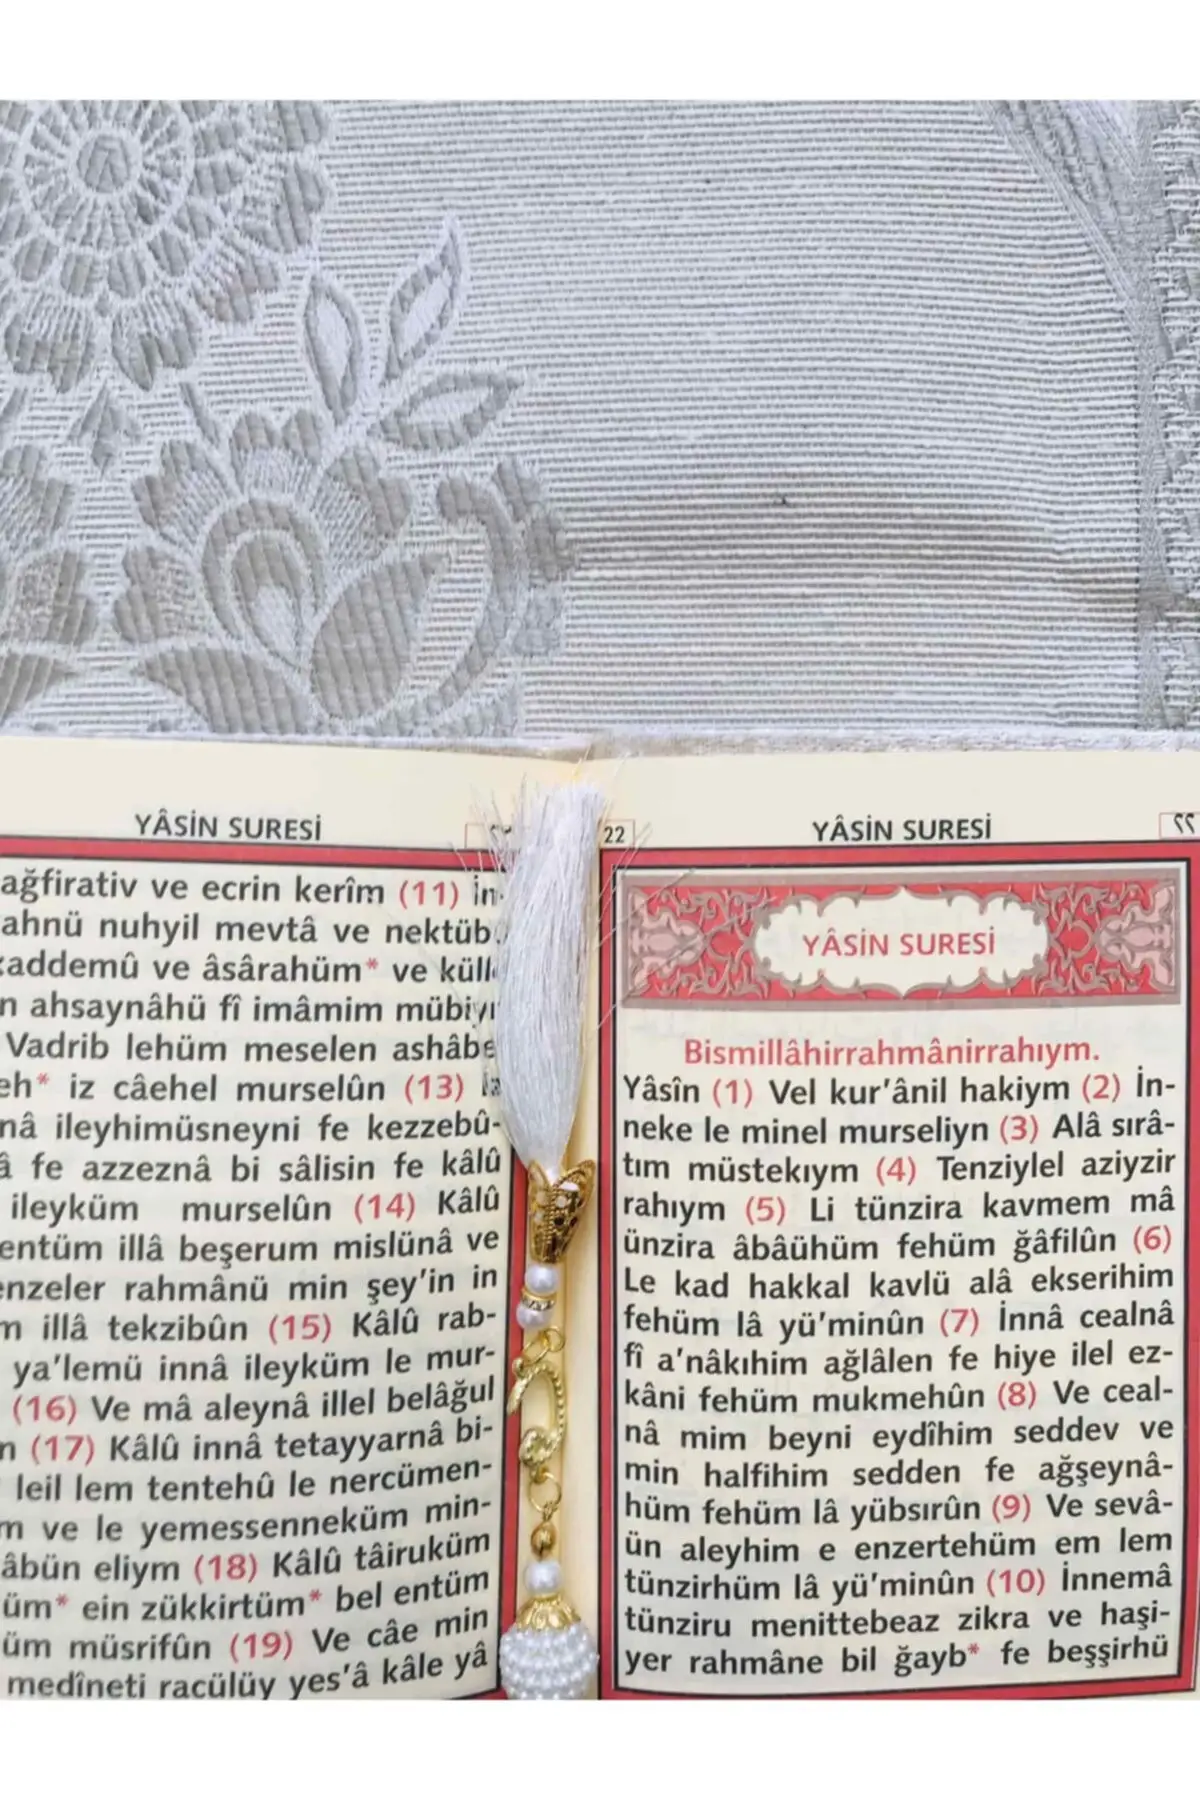 22
YÂSİN SURESİ
٢٢
YÂSİN SURESİ
Bismillâhirrahmânirrahıym.
Yâsîn (1) Vel kur’ânil hakiym (2) İn-
neke le minel murseliyn (3) Alâ sırâ-
tım müstekıym (4) Tenziylel aziyzir
rahıym (5) Li tünzira kavmem mâ
ünzira âbâühüm fehüm ğâfilûn (6)
Le kad hakkal kavlü alâ ekserihim
fehüm lâ yü’minûn (7) İnnâ cealnâ
fî a’nâkıhim ağlâlen fe hiye ilel ez-
kâni fehüm mukmehûn (8) Ve ceal-
nâ mim beyni eydîhim seddev ve
min halfihim sedden fe ağşeynâ-
hüm fehüm lâ yübsırûn (9) Ve sevâ-
ün aleyhim e enzertehüm em lem
tünzirhüm lâ yü’minûn (10) İnnemâ
tünziru menittebeaz zikra ve haşi-
yer rahmâne bil ğayb* fe beşşirhü
YÂSİN SURESİ
ağfirativ ve ecrin kerîm (11) İn-
ahnü nuhyil mevtâ ve nektüb
addemû ve âsârahüm* ve küll
n ahsaynâhü fî imâmim mübiy
Vadrib lehüm meselen ashâbe
eh* iz câehel murselûn (13)
nâ ileyhimüsneyni fe kezzebû-
â fe azzeznâ bi sâlisin fe kâlû
ileyküm murselûn (14) Kâlû
entüm illâ beşerum mislünâ ve
enzeler rahmânü min şey’in in
m illâ tekzibûn (15) Kâlû rab-
ya’lemü innâ ileyküm le mur-
(16) Ve mâ aleynâ illel belâğul
n (17) Kâlû innâ tetayyarnâ bi-
leil lem tentehû le nercümen-
m ve le yemessenneküm min-
âbün eliym (18) Kâlû tâiruküm
üm* ein zükkirtüm* bel entüm
üm müsrifûn (19) Ve câe min
medîneti racülüy yes’â kâle yâ